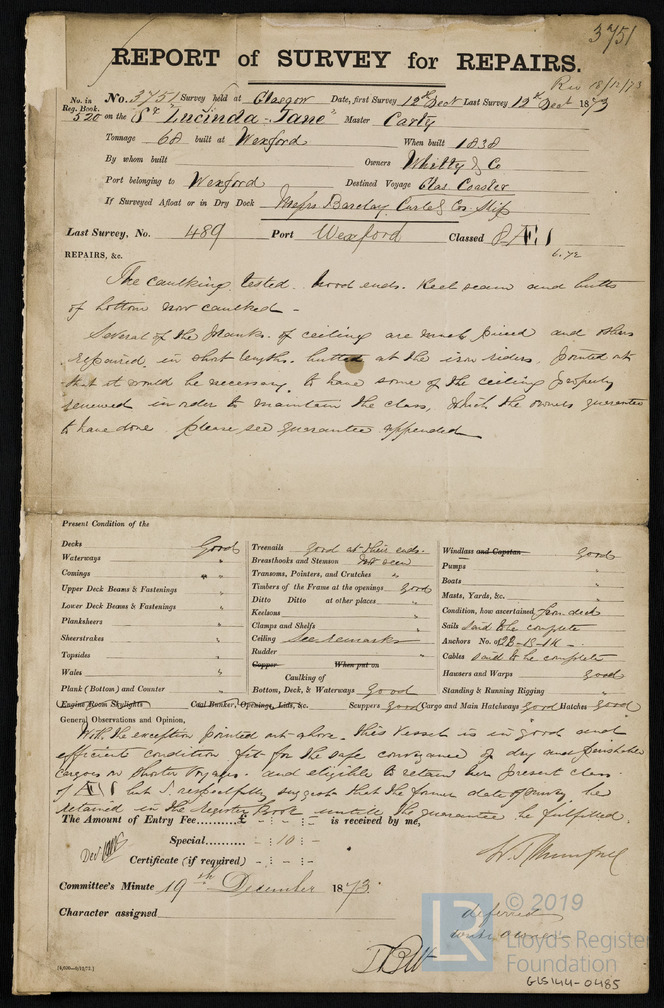 3751
REPORT of SURVEY for REPAIRS.
Rec 18/12/73
No. in Reg. Book. No. 3751 Survey held at Glasgow Date, first Survey 12th Dec Last Survey 12th Dec 1873
520 on the Sr "Lucinda Jane" Master Carty
Tonnage 68 built at Wexford When built 1838
By whom built Owners Whitty & Co
Port belonging to Wexford Destined Voyage Glas. Coaster
If Surveyed Afloat or in Dry Dock Messrs Barclay Curle & Cos. Slip
Last Survey, No. 489 Port Wexford Classed Æ 1
6.72
REPAIRS, &c.
The caulking tested. hood ends. Keel seam and butts
of bottom now caulked -
Several of the planks of ceiling are much pieced and others
repaired in short lengths. butted at the iron riders, pointed out
that it would be necessary to have some of the ceiling properly
renewed in order to maintain the class, which the owners guarantee
to have done. please see guarantee appended
Present Condition of the
Decks Good
Waterways "
Comings " "
Upper Deck Beams & Fastenings "
Lower Deck Beams & Fastenings "
Planksheers "
Sheerstrakes "
Topsides "
Wales "
Plank (Bottom) and Counter "
Engine Room Skylights Coal Bunker, Openings, Lids, &c.
Treenails good at their ends.
Breasthooks and Stemson Not seen
Transoms, Pointers, and Crutches "
Timbers of the Frame at the openings good
Ditto Ditto at other places "
Keelsons "
Clamps and Shelfs "
Ceiling See remarks
Rudder
Copper When put on
Caulking of
Bottom, Deck, & Waterways Good
Scuppers good Cargo and Main Hatchways good Hatches good
Windlass and Capstan good
Pumps "
Boats "
Masts, Yards, &c. "
Condition, how ascertained from deck
Sails said to be complete
Anchors No. of 2B-1S-1K -
Cables said to be complete
Hawsers and Warps good
Standing & Running Rigging "
General Observations and Opinion,
With the exception pointed out above. this vessel is in good and
efficient condition fit for the safe conveyance of dry and perishable
cargoes on shorter voyages. and eligible to retain her present class
of Æ 1 but I respectfully suggest that the former date of survey be
retained in the Register Book untill the guarantee be fulfilled.
The Amount of Entry Fee.........£ - : - : - is received by me,
Special...... - : 10 : -
Certificate (if required) - : - : -
Committee's Minute 19th December 1873.
Character assigned deferred
[1,000—9/12/72.]
© 2019
LR
Lloyd's Register
Foundation
GLS144-0485